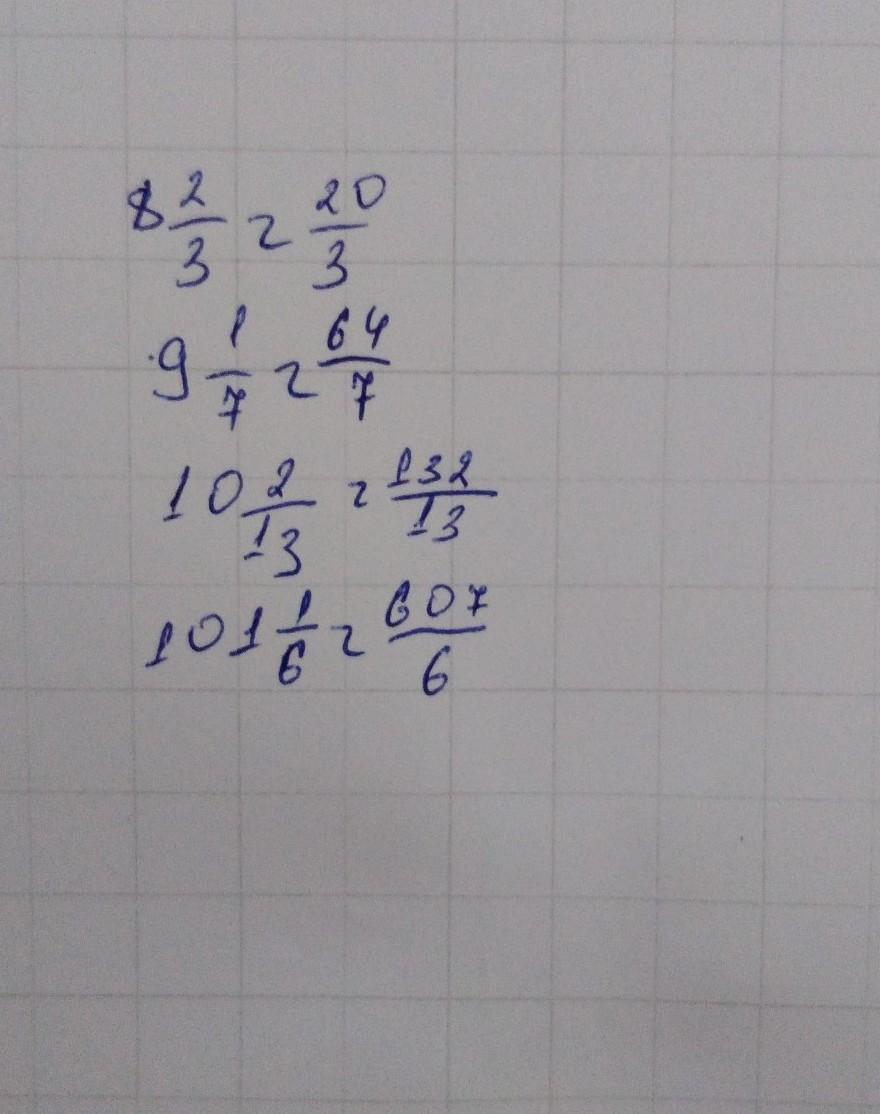 8 2/3 = 20/3
9 1/7 = 64/7
10 2/13 = 132/13
101 1/6 = 607/6